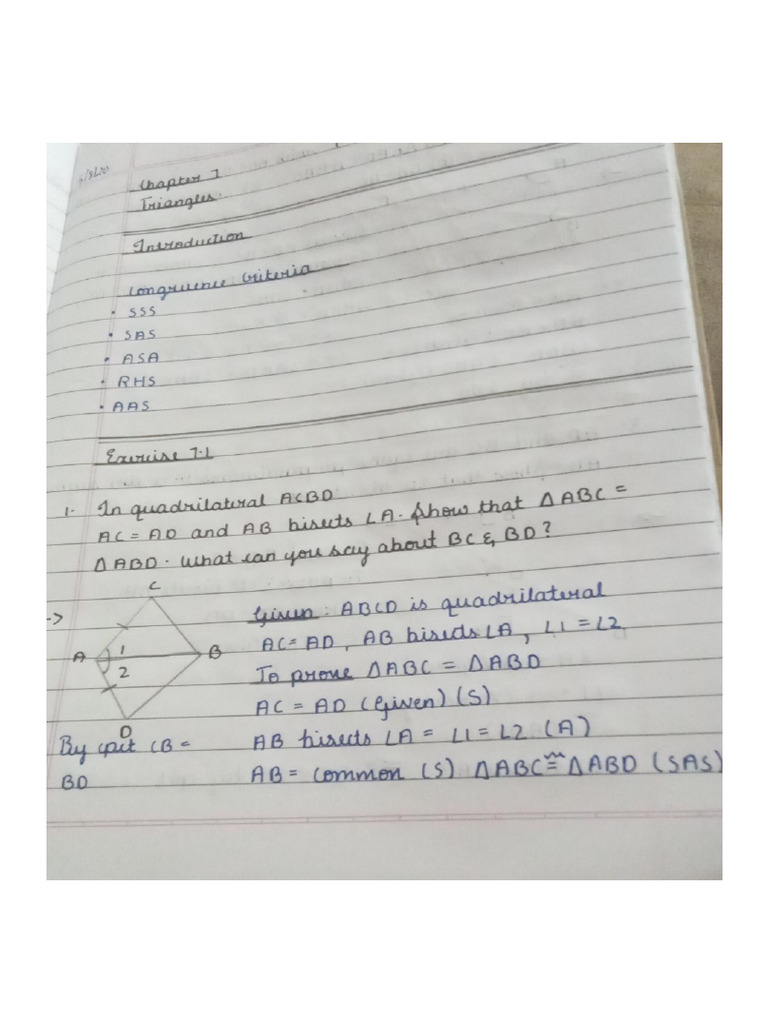 6/8/20
Chapter 7
Triangles.
Introduction
Congruence Criteria
• SSS
• SAS
• ASA
• RHS
• AAS
Exercise 7.1
1. In quadrilateral ACBD
AC = AD and AB bisects ∠A. Show that △ABC =
△ABD. What can you say about BC & BD?
->
C
A 1 B
2
D
Given: ABCD is quadrilateral
AC = AD, AB bisects ∠A, ∠1 = ∠2
To prove △ABC = △ABD
AC = AD (Given) (S)
AB bisects ∠A = ∠1 = ∠2 (A)
AB = common (S) △ABC ≅ △ABD (SAS)
By cpct CB =
BD